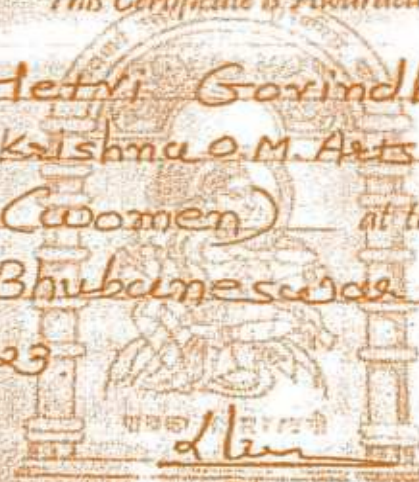 This Certificate is Awarded
Hetvi Govindh
Krishna O.M. Arts
(women) at t
Bhubaneswar
23.